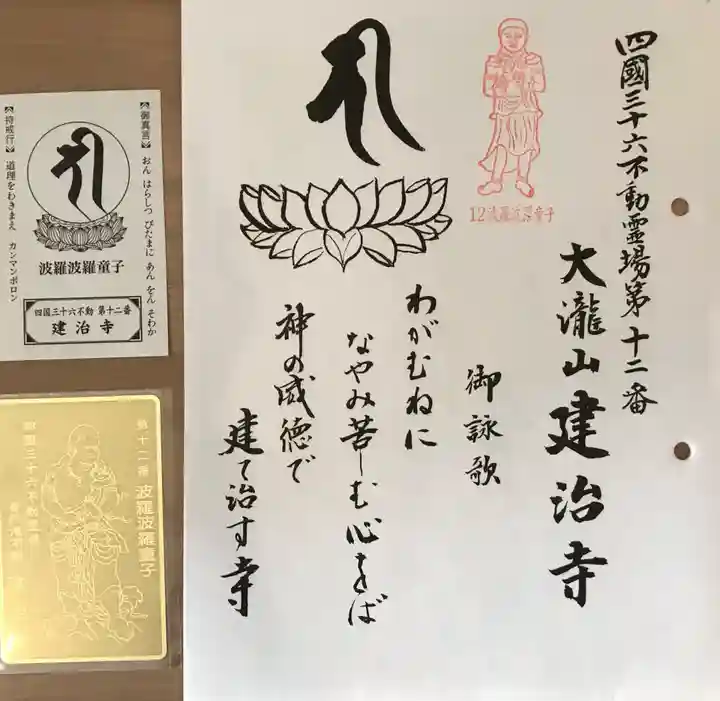 四國三十六不動霊場第十二番
大瀧山建治寺
御詠歌
わがむねに
なやみ苦しむ心をば
神の威徳で
建て治す寺
12波羅波羅童子
御真言
おん はらしつ びたまに あん をん そわか
持戒行
道理をわきまえ カンマンボロン
波羅波羅童子
四国三十六不動 第十二番
建治寺
第十二番 波羅波羅童子
四国三十六不動霊場